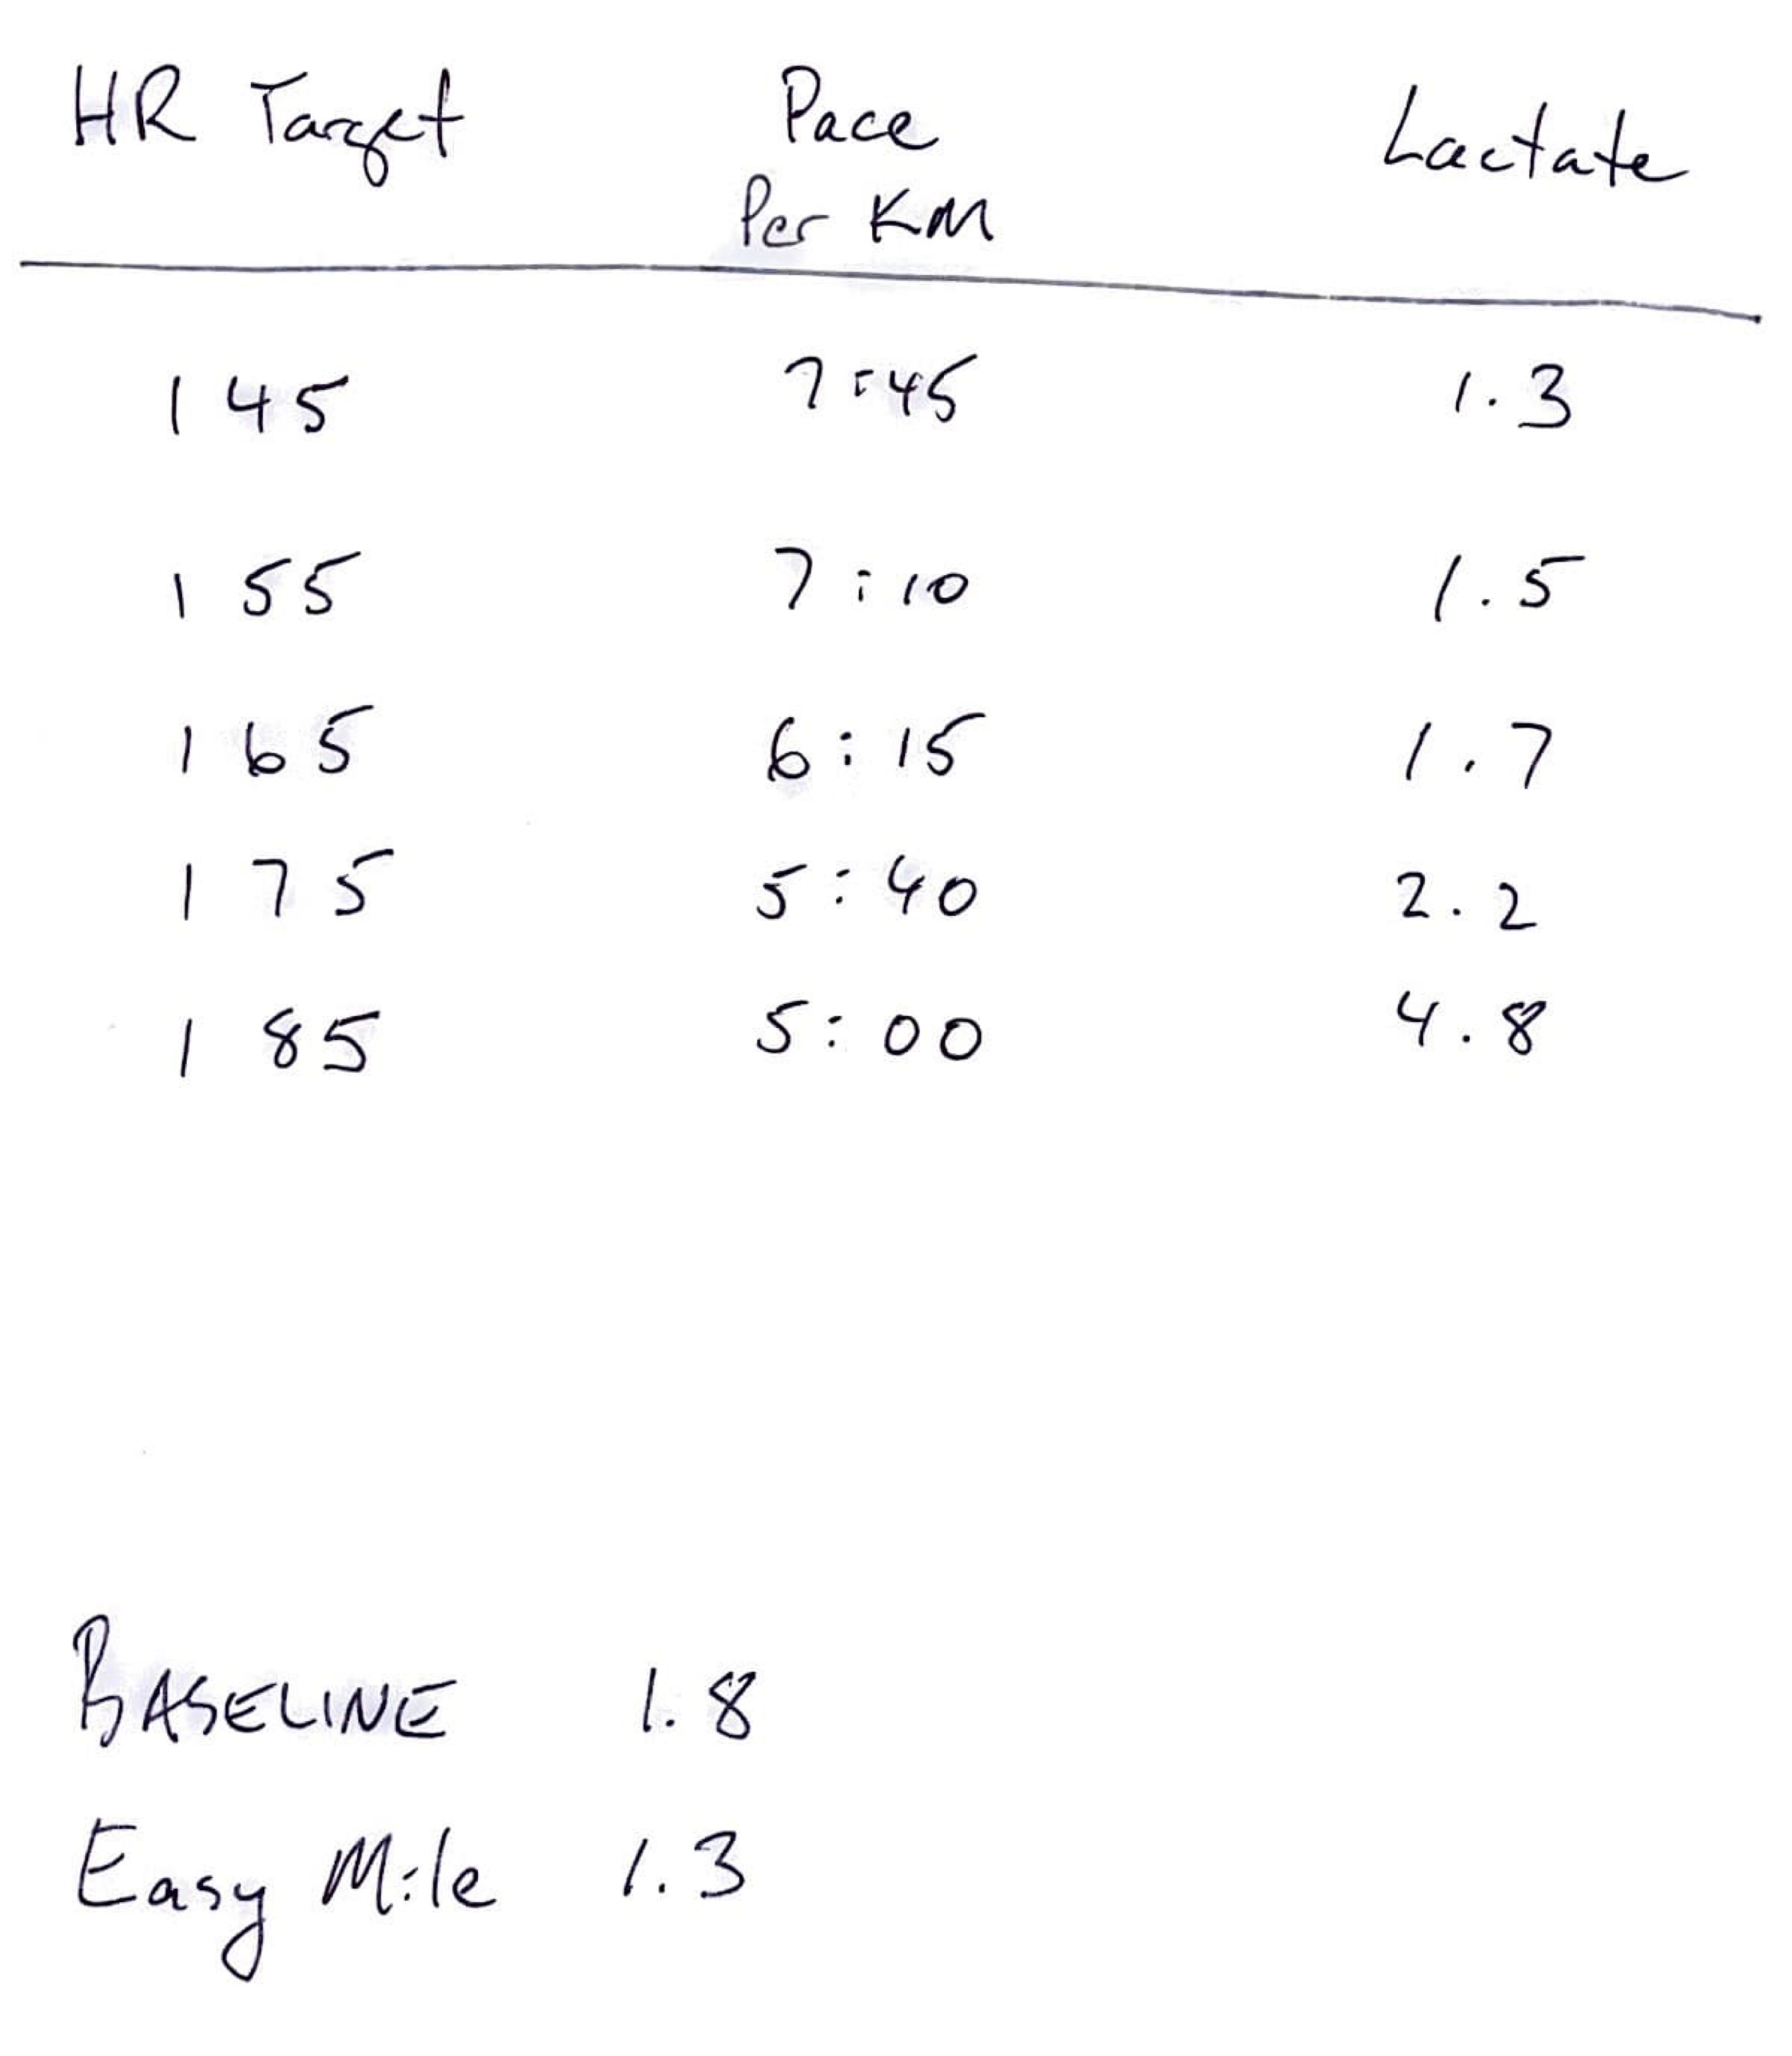 HR Target Pace Lactate
Per KM
145 7:45 1.3
155 7:10 1.5
165 6:15 1.7
175 5:40 2.2
185 5:00 4.8
BASELINE 1.8
Easy Mile 1.3